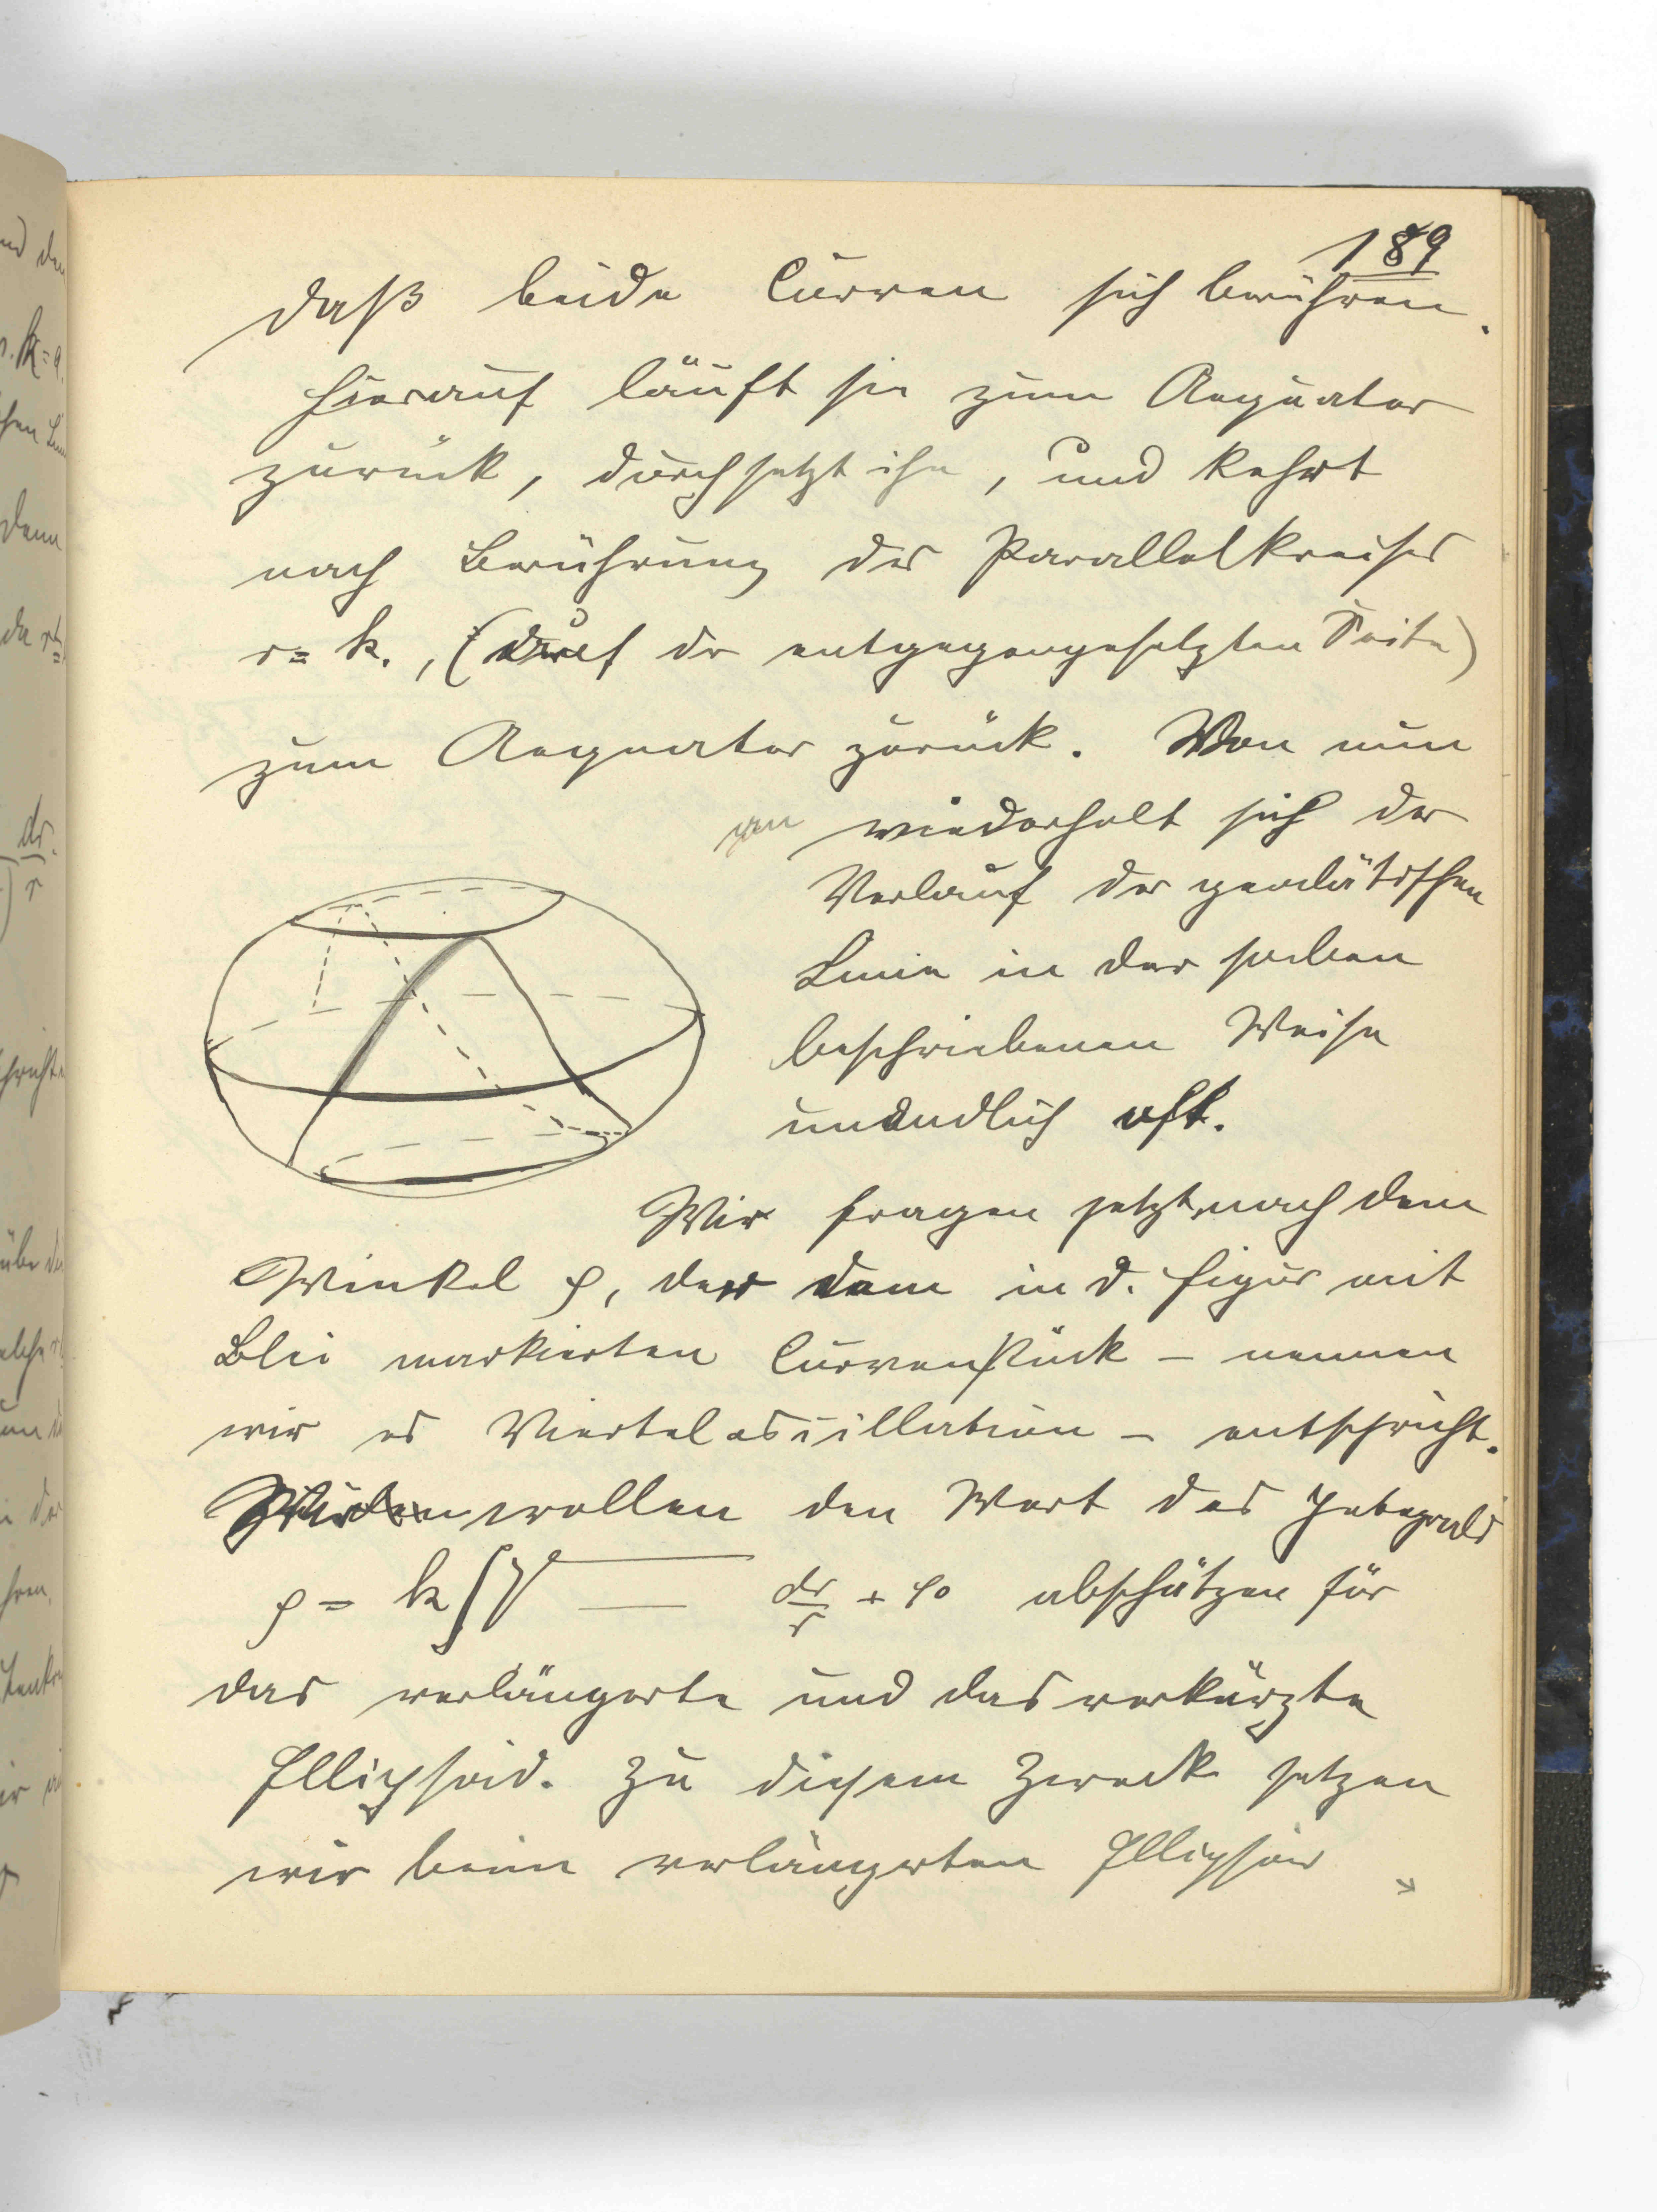 189
daß beide Curven sich berühren.
Hierauf läuft sie zum Aequator
zurück, durchsetzt ihn, und kehrt
nach Berührung des Parallelkreises
r = k., (auf der entgegengesetzten Seite)
zum Aequator zurück. Von nun
an wiederholt sich der
Verlauf der geodätischen
Linie in der soeben
beschriebenen Weise
unendlich oft.
Wir fragen jetzt nach dem
Winkel φ, der dem in d. Figur mit
Blei markierten Curvenstück – nennen
wir es Vierteloscillation – entspricht.
Wir wollen den Wert des Integrals
φ = k ∫ √ — dr/r + φ0 abschätzen für
das verlängerte und das verkürzte
Ellipsoid. Zu diesem Zweck setzen
wir beim verlängerten Ellipsoid